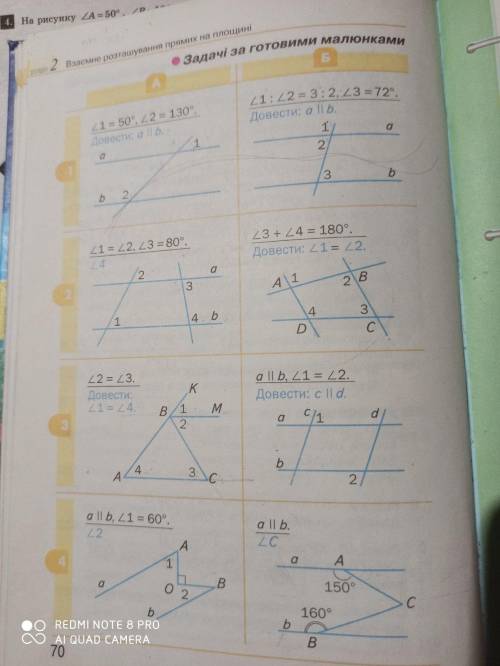 4. На рисунку ∠A = 50°,
2 Взаємне розташування прямих на площині
Задачі за готовими малюнками
А
Б
1
∠1 = 50°, ∠2 = 130°.
Довести: a || b.
a
1
b
2
∠1 : ∠2 = 3 : 2, ∠3 = 72°.
Довести: a || b.
1
a
2
3
b
2
∠1 = ∠2, ∠3 = 80°.
∠4
2
a
3
1
4
b
∠3 + ∠4 = 180°.
Довести: ∠1 = ∠2.
A
1
2
B
4
3
D
C
3
∠2 = ∠3.
Довести:
∠1 = ∠4.
K
B
1
M
2
A
4
3
C
a || b, ∠1 = ∠2.
Довести: c || d.
a
c
1
d
b
2
4
a || b, ∠1 = 60°.
∠2
A
1
a
O
2
B
b
a || b.
∠C
a
A
150°
C
160°
b
B
REDMI NOTE 8 PRO
AI QUAD CAMERA
70